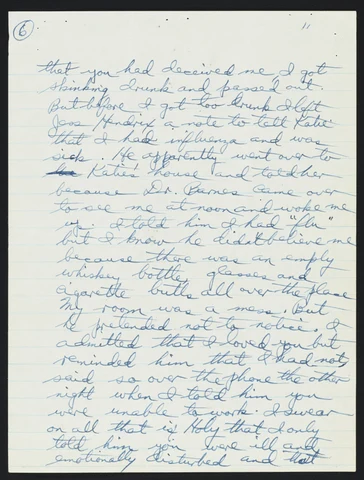 6
11
that you had deceived me, I got
stinking drunk and passed out.
But before I got too drunk I left
Jess Hendrix a note to tell Katie
that I had influenza and was
sick. He apparently went over to
Katie's house and told her
because Dr. Barnes came over
to see me at noon and woke me
up. I told him I had "flu"
but I know he didn't believe me
because there was an empty
whiskey bottle, glasses and
cigarette butts all over the place
My room was a mess. But
he pretended not to notice. I
admitted that I loved you but
reminded him that I had not
said so over the phone the other
night when I told him you
were unable to work. I swear
on all that is Holy that I only
told him you were ill and
emotionally disturbed and that